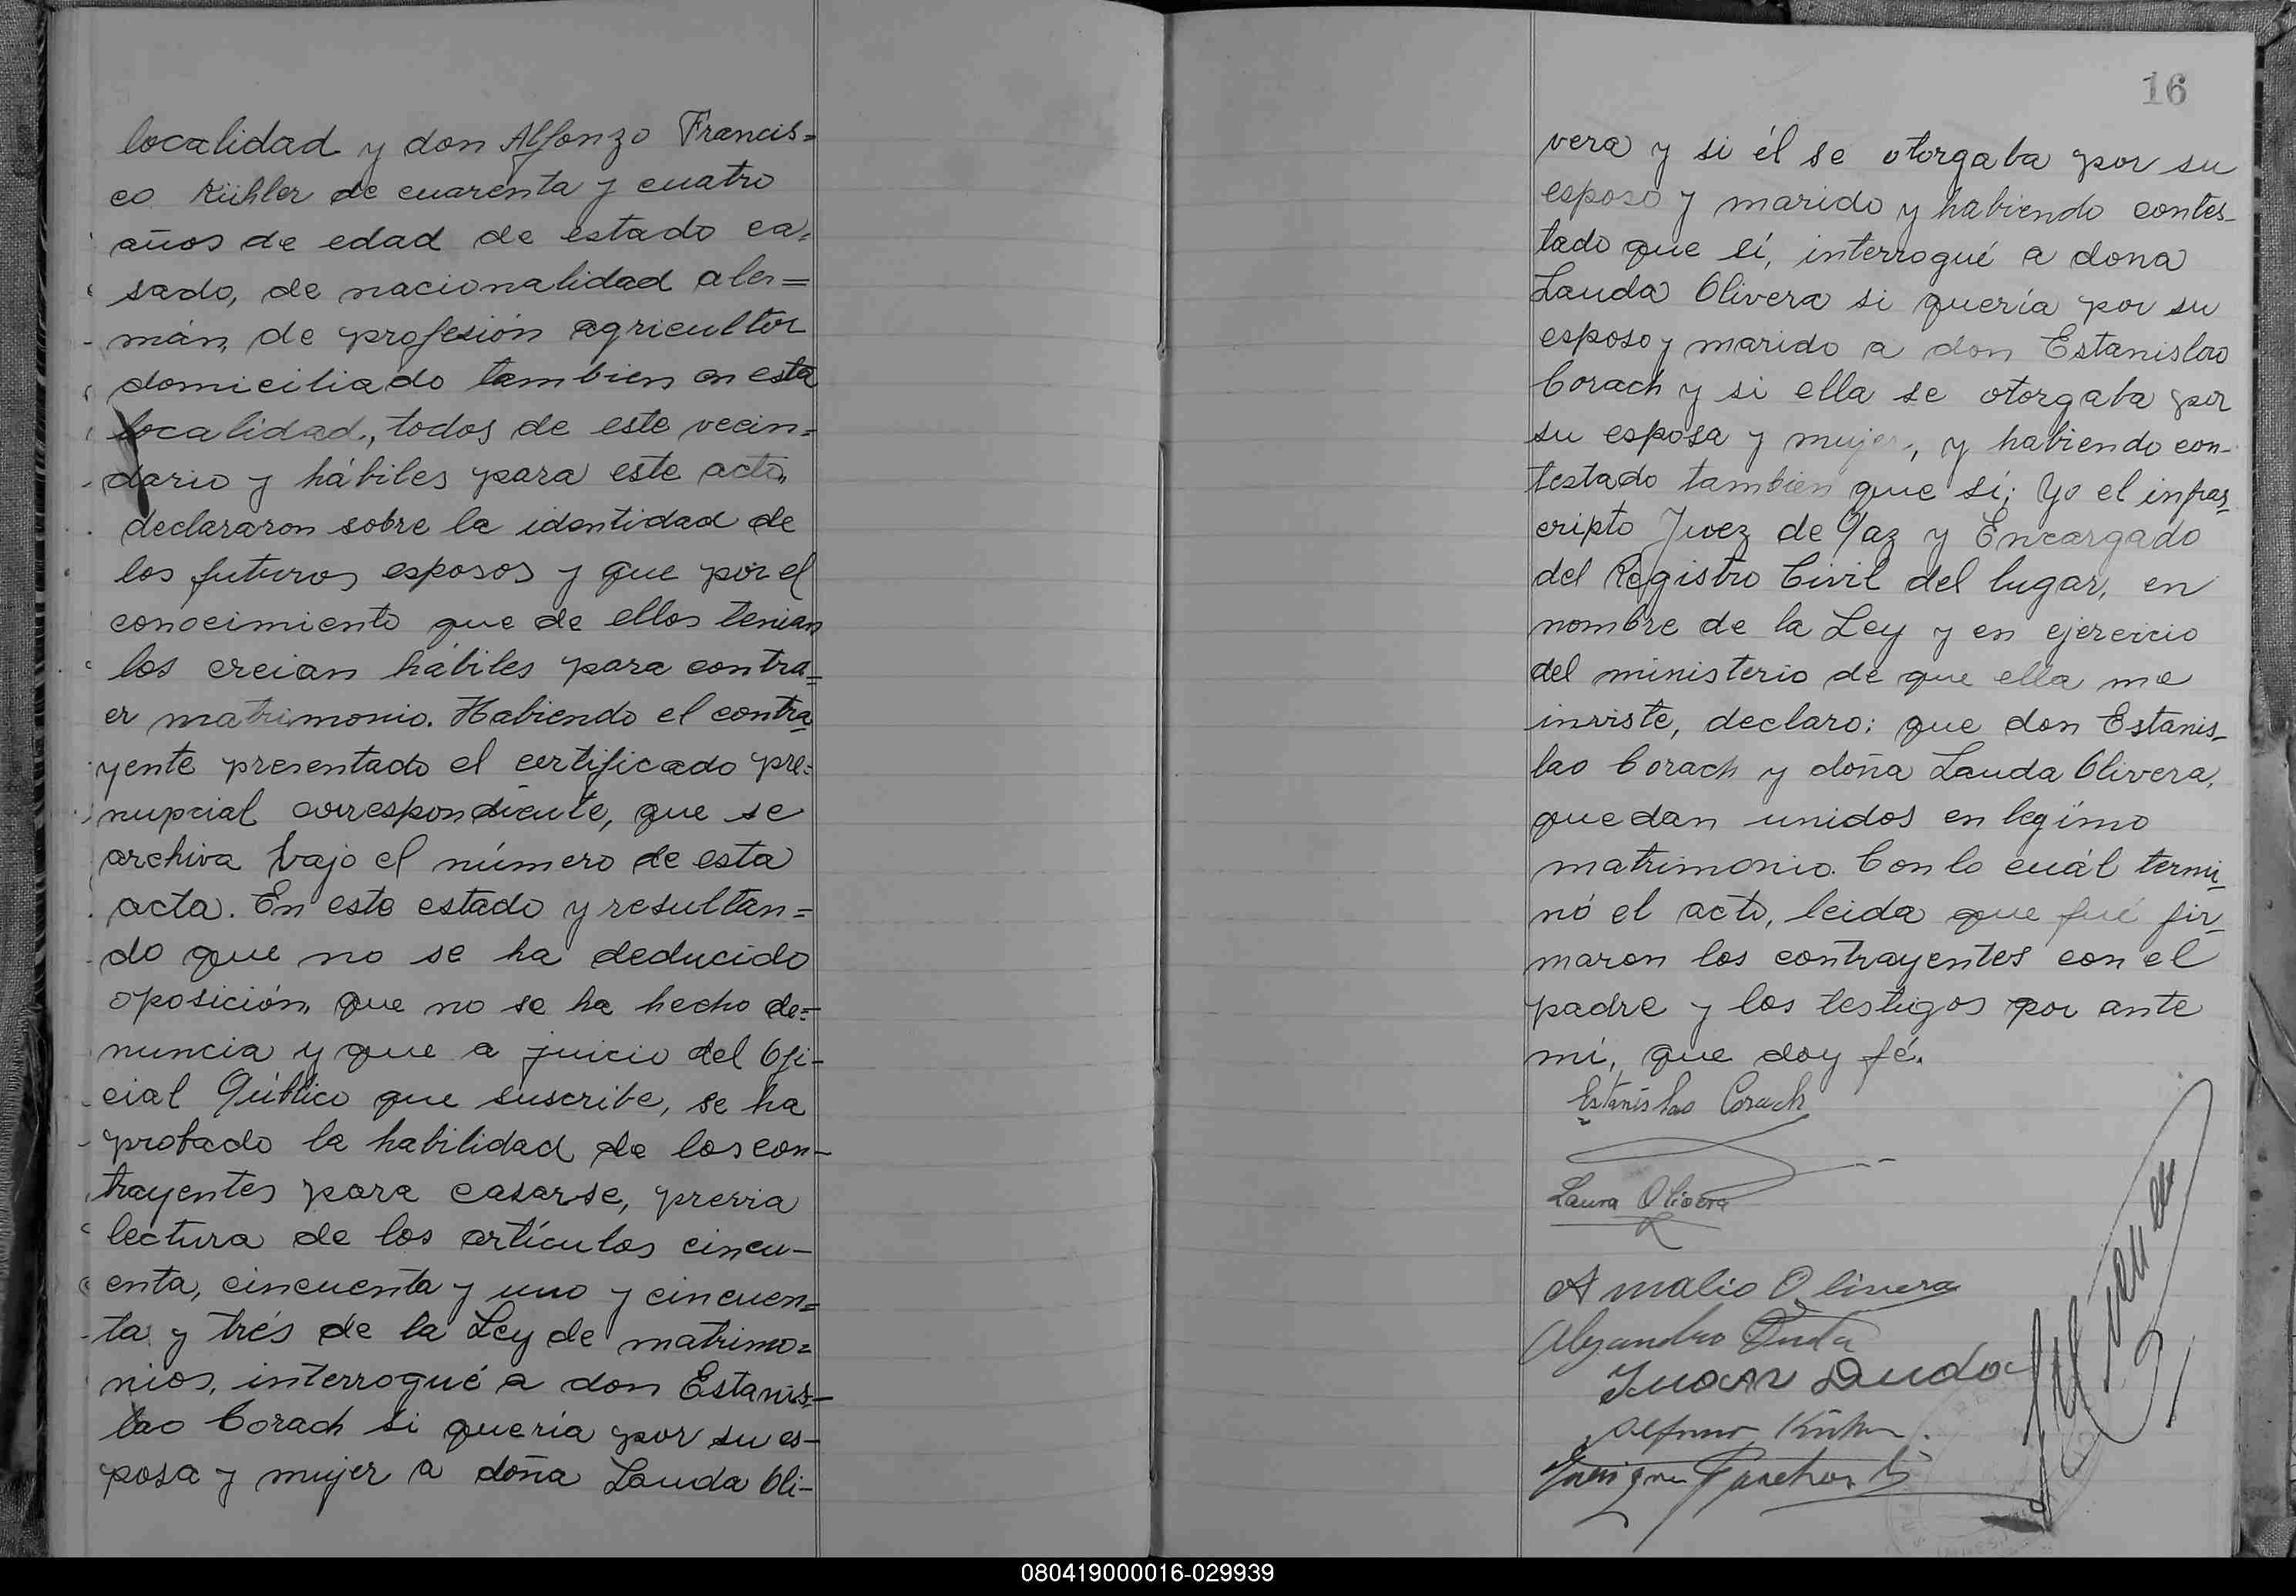 localidad y don Alfonzo Francis=
co Kühler de cuarenta y cuatro
años de edad de estado ca=
sado, de nacionalidad ale=
mán, de profesión agricultor
domiciliado tambien en esta
localidad, todos de este vecin=
dario y hábiles para este acto,
declararon sobre la identidad de
los futuros esposos y que por el
conocimiento que de ellos tenian
los creian hábiles para contra=
er matrimonio. Habiendo el contra=
yente presentado el certificado pre=
nupcial correspondiente, que se
archiva bajo el número de esta
acta. En este estado y resultan=
do que no se ha deducido
oposición, que no se ha hecho de=
nuncia y que a juicio del Ofi-
cial Público que suscribe, se ha
probado la habilidad de los con-
trayentes para casarse, previa
lectura de los artículos cincu-
enta, cincuenta y uno y cincuen=
ta y trés de la Ley de matrimo=
nios, interrogué a don Estanis-
lao Corach si quería por su es-
posa y mujer a doña Lauda Oli-
16
vera y si él se otorgaba por su
esposo y marido y habiendo contes-
tado que sí, interrogué a dona
Lauda Olivera si quería por su
esposo y marido a don Estanislao
Corach y si ella se otorgaba por
su esposa y mujer, y habiendo con-
testado tambien que sí; Yo el infras-
cripto Juez de Paz y Encargado
del Registro Civil del lugar, en
nombre de la Ley y en ejercicio
del ministerio de que ella me
inviste, declaro: que don Estanis-
lao Corach y doña Lauda Olivera,
quedan unidos en legimo
matrimonio. Con lo cuál termi-
nó el acto, leida que fué fir-
maron los contrayentes con el
padre y los testigos por ante
mí, que doy fé.
Estanislao Corach
Laura Olivera
Amalio Olivera
Alejandro Duda
Juan Duda
Alfonso
Enrique
080419000016-029939